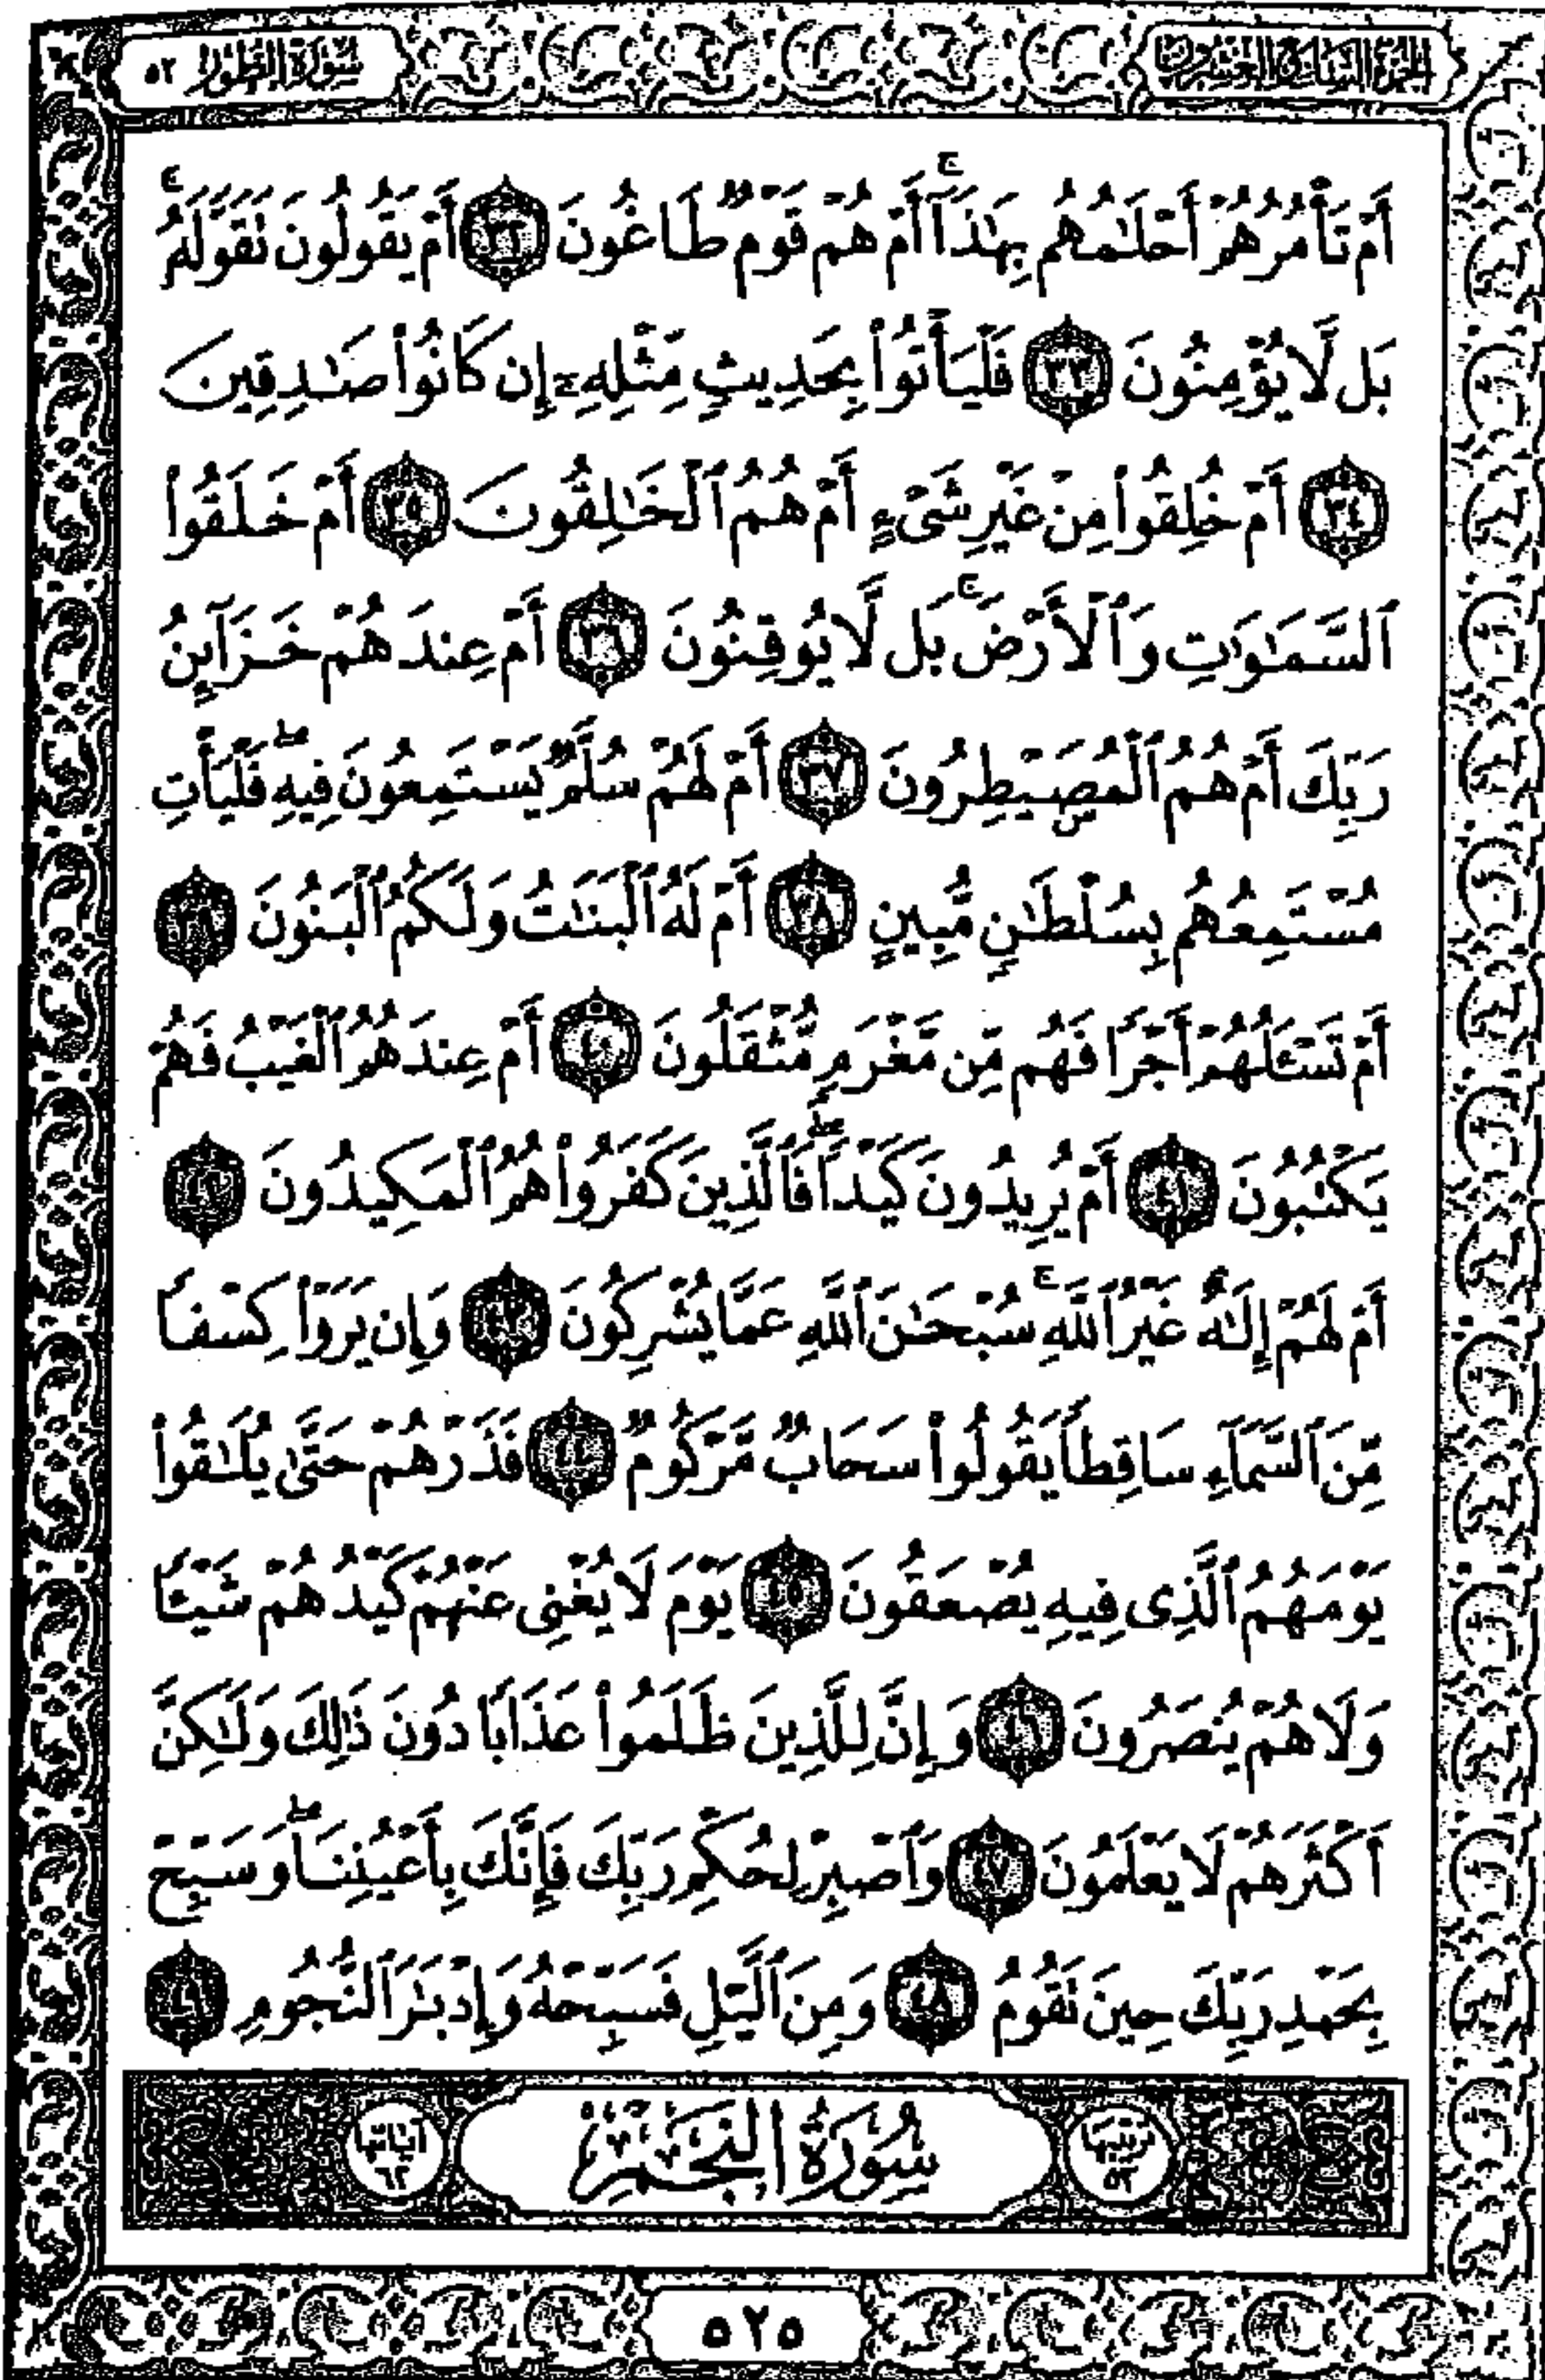 الجزء السابع والعشرون
سورة الطور ٥٢
أَمْ تَأْمُرُهُمْ أَحْلَـٰمُهُم بِهَـٰذَآ ۚ أَمْ هُمْ قَوْمٌ طَاغُونَ ٣٢ أَمْ يَقُولُونَ تَقَوَّلَهُۥ ۚ
بَل لَّا يُؤْمِنُونَ ٣٣ فَلْيَأْتُوا۟ بِحَدِيثٍ مِّثْلِهِۦٓ إِن كَانُوا۟ صَـٰدِقِينَ
٣٤ أَمْ خُلِقُوا۟ مِنْ غَيْرِ شَىْءٍ أَمْ هُمُ ٱلْخَـٰلِقُونَ ٣٥ أَمْ خَلَقُوا۟
ٱلسَّمَـٰوَٰتِ وَٱلْأَرْضَ ۚ بَل لَّا يُوقِنُونَ ٣٦ أَمْ عِندَهُمْ خَزَآئِنُ
رَبِّكَ أَمْ هُمُ ٱلْمُصَۣيْطِرُونَ ٣٧ أَمْ لَهُمْ سُلَّمٌ يَسْتَمِعُونَ فِيهِ ۖ فَلْيَأْتِ
مُسْتَمِعُهُم بِسُلْطَـٰنٍ مُّبِينٍ ٣٨ أَمْ لَهُ ٱلْبَنَـٰتُ وَلَكُمُ ٱلْبَنُونَ ٣٩
أَمْ تَسْـَٔلُهُمْ أَجْرًا فَهُم مِّن مَّغْرَمٍ مُّثْقَلُونَ ٤٠ أَمْ عِندَهُمُ ٱلْغَيْبُ فَهُمْ
يَكْتُبُونَ ٤١ أَمْ يُرِيدُونَ كَيْدًا ۖ فَٱلَّذِينَ كَفَرُوا۟ هُمُ ٱلْمَكِيدُونَ ٤٢
أَمْ لَهُمْ إِلَـٰهٌ غَيْرُ ٱللَّهِ ۚ سُبْحَـٰنَ ٱللَّهِ عَمَّا يُشْرِكُونَ ٤٣ وَإِن يَرَوْا۟ كِسْفًا
مِّنَ ٱلسَّمَآءِ سَاقِطًا يَقُولُوا۟ سَحَابٌ مَّرْكُومٌ ٤٤ فَذَرْهُمْ حَتَّىٰ يُلَـٰقُوا۟
يَوْمَهُمُ ٱلَّذِى فِيهِ يُصْعَقُونَ ٤٥ يَوْمَ لَا يُغْنِى عَنْهُمْ كَيْدُهُمْ شَيْـًٔا
وَلَا هُمْ يُنصَرُونَ ٤٦ وَإِنَّ لِلَّذِينَ ظَلَمُوا۟ عَذَابًا دُونَ ذَٰلِكَ وَلَـٰكِنَّ
أَكْثَرَهُمْ لَا يَعْلَمُونَ ٤٧ وَٱصْبِرْ لِحُكْمِ رَبِّكَ فَإِنَّكَ بِأَعْيُنِنَا ۖ وَسَبِّحْ
بِحَمْدِ رَبِّكَ حِينَ تَقُومُ ٤٨ وَمِنَ ٱلَّيْلِ فَسَبِّحْهُ وَإِدْبَـٰرَ ٱلنُّجُومِ ٤٩
ترتيبها ٥٣
سُورَةُ النَّجْمِ
آياتها ٦٢
٥٢٥